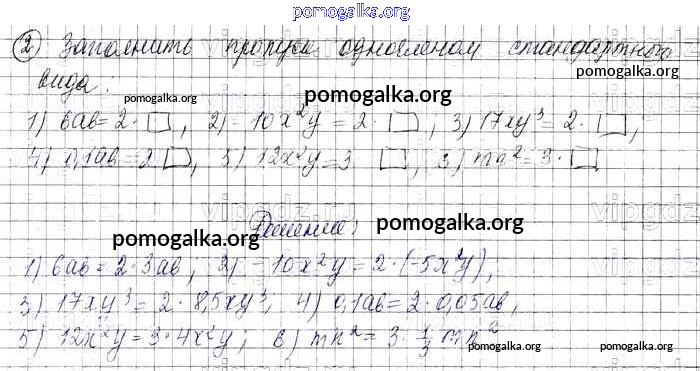 pomogalka.org
② Заполнить пропуск одночленом стандартного
pomogalka.org
вида:
pomogalka.org pomogalka.org
1) 6ab = 2 · □, 2) -10x²y = 2 · □; 3) 17xy³ = 2 · □,
4) 0,1ab = 2 □, 5) 12x²y = 3 □, 6) mn² = 3 · □
pomogalka.org
vipgdz
Решение:
pomogalka.org pomogalka.org
1) 6ab = 2 · 3ab, 2) -10x²y = 2 · (-5x²y),
3) 17xy³ = 2 · 8,5xy³, 4) 0,1ab = 2 · 0,05ab,
5) 12x²y = 3 · 4x²y; 6) mn² = 3 · 1/3 mn²
pomogalka.org pomogalka.org